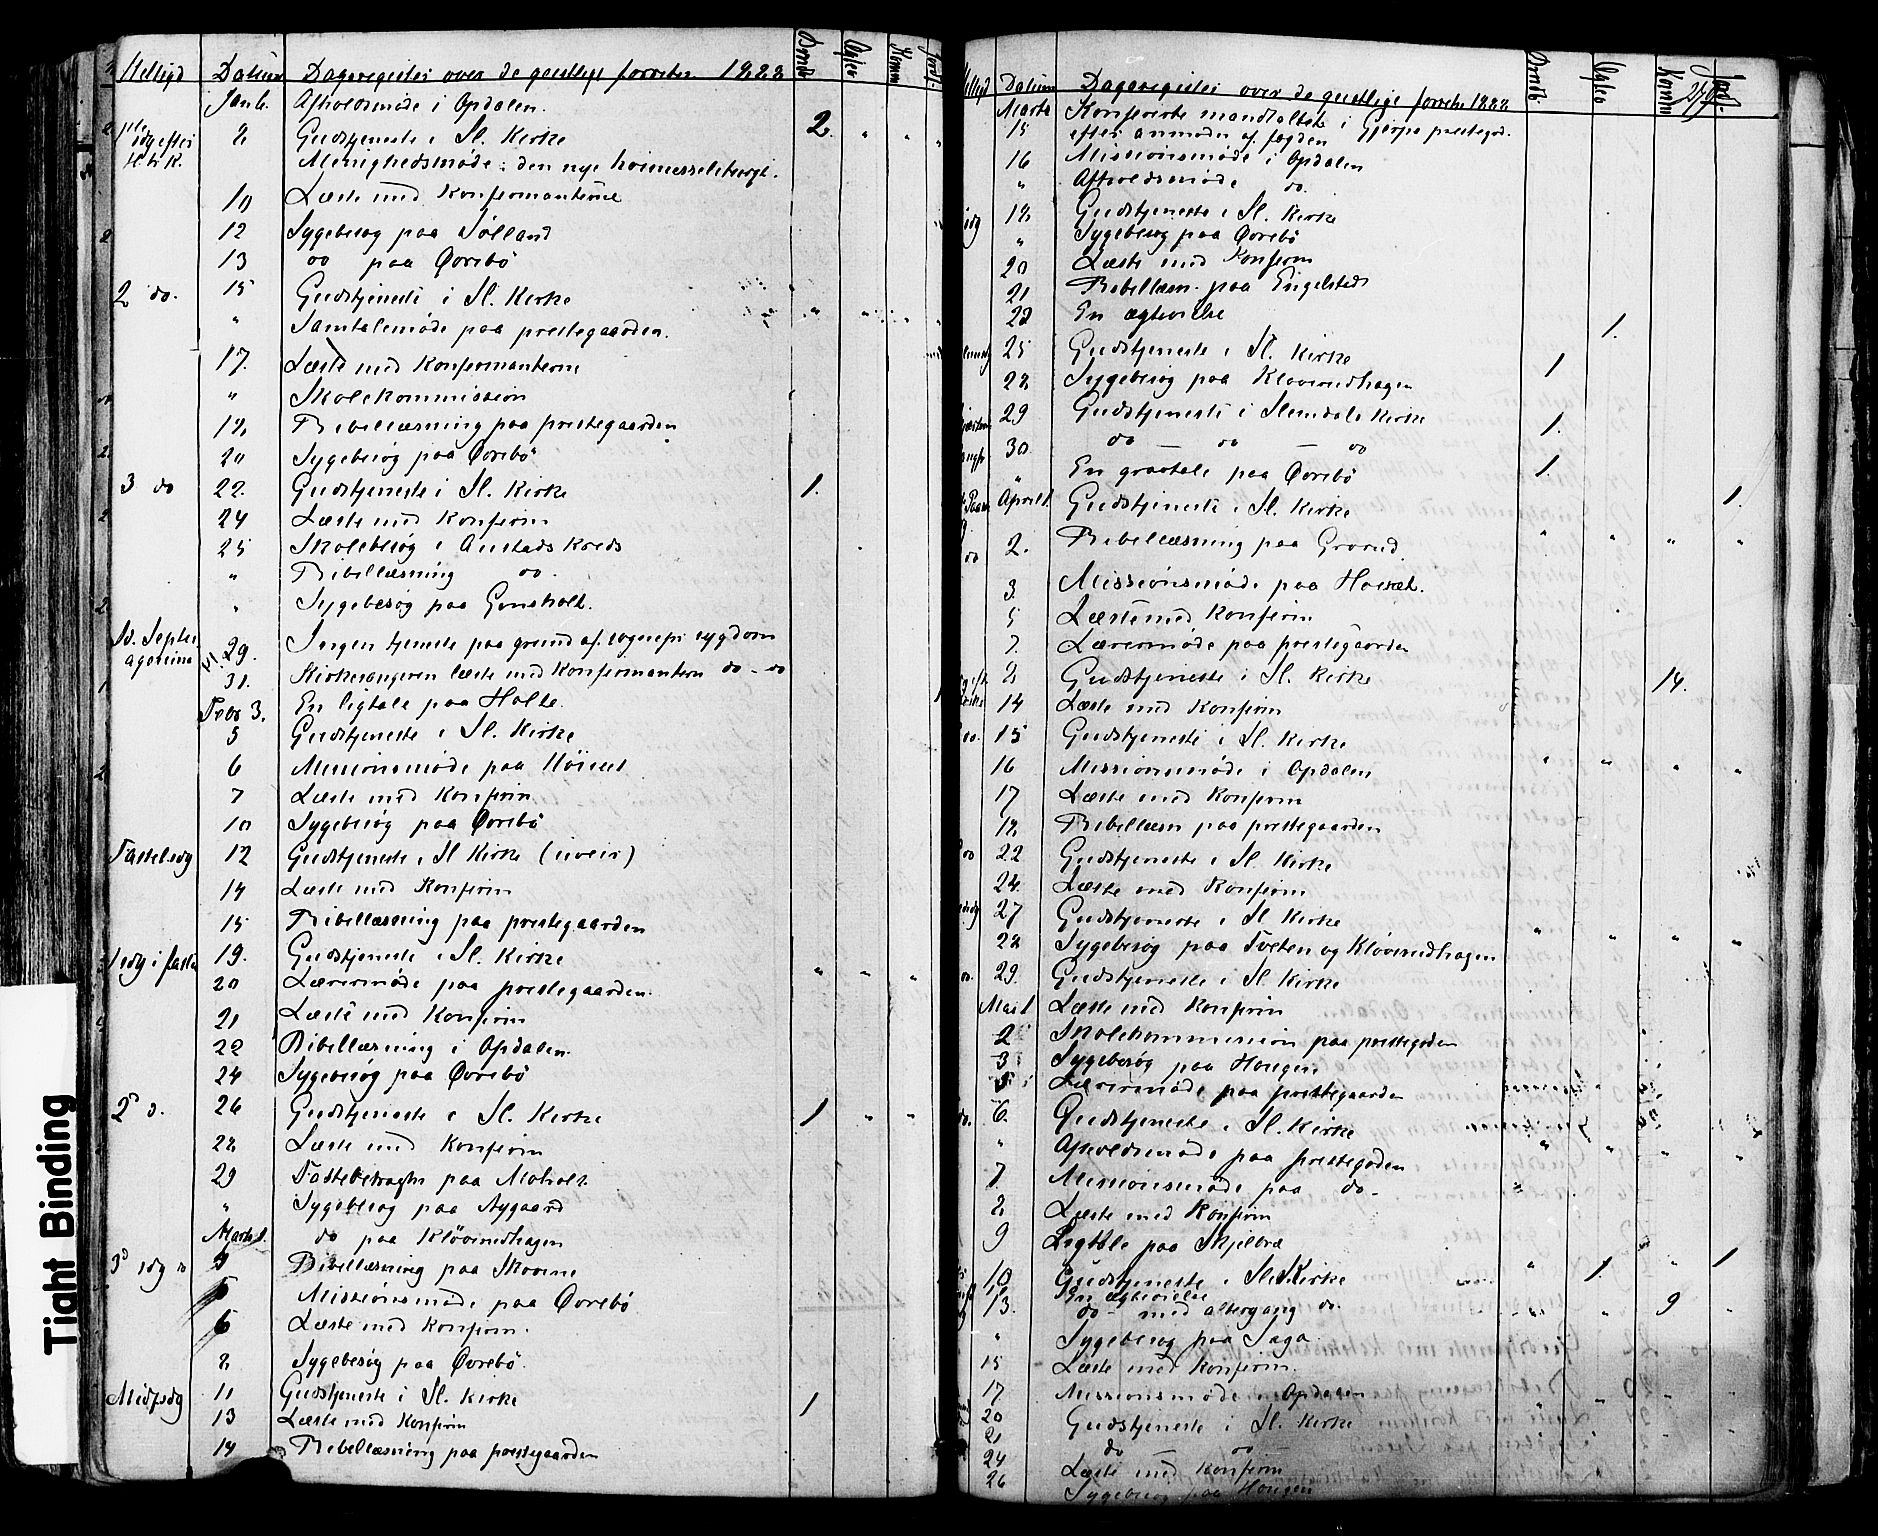 Helligd Datum Dagsregister over de geistlige forretn 1888 Daab Ægtev Komm Jordf.
Jan 6. Afholdsmøde i Opdalen.
8 Gudstjeneste i Sl. Kirke 2. " "
H 3 K. Menighedsmøde: den nye
10 Læste med Konfirmanterne
12 Sygebesøg paa Tølland
13 do paa Øvrebö
2 do. 15 Gudstjeneste i Sl. Kirke " " "
" Samtalemøde paa prestegaarden.
17. Læste med Konfirmanterne
" Skolekommission
18 Bibellæsning paa prestegaarden
20 Sygebesøg paa Øvrebö
3 do 22. Gudstjeneste i Sl. Kirke 1.
24 Læste med Konfirm
25 Skolebesøg i Austads Kreds
" Bibellæsning do.
" Sygebesøg paa Gonsholt.
S. Septu
agesima 29. Ingen tjeneste paa grund af sognepr sygdom
31. Kirkesangeren læste med Konfirmantern do - do
Febr 3. En ligtale paa Holte.
5 Gudstjeneste i Sl. Kirke
6 Missionsmøde paa
7 Læste med Konfirm
10 Sygebesøg paa Øvrebö
Fastelsdg 12 Gudstjeneste i Sl Kirke (uveir)
14 Læste med Konfirm
15 Bibellæsning paa prestegaarden
1 sdg i faste 19. Gudstjeneste i Sl. Kirke " " "
20 Lærermøde paa prestegaarden.
21 Læste med Konfirm
22 Bibellæsning i Opdalen.
24 Sygebesøg paa Øvrebö
2d d. 26 Gudstjeneste i Sl. Kirke 1 " "
28 Læste med Konfirm
29 Fastebetragtn paa Moholt
" Sygebesøg paa Nygaard
Marts 1. do paa Klöverudhagen
3d sdg Bibellæsning paa
5 Missionsmøde paa Øvrebö
6 Læste med Konfirm.
8 Sygebesøg paa Øvrebö.
Midfsdg 11 Gudstjeneste i Sl. Kirke 1
13 Læste med Konfirm
14 Bibellæsning paa prestegaarden
Helligd Datum Dagsregister over de geistlige forretn 1888 Daab Ægtev Komm Jordf
Marts Konfererte mandtallet i Gjerpe prestegd.
15 efter anmodn af fogden
16 Missionsmøde i Opdalen
" Afholdsmøde do.
18 Gudstjeneste i Sl. Kirke
" Sygebesøg paa Øvrebö
20 Læste med Konfirm
21 Bibellæsn. paa Engelstad
23 En ægtevielse 1.
25 Gudstjeneste i Sl. Kirke 1
28 Sygebesøg paa Klöverudhagen
29 Gudstjeneste i Slemdals Kirke 1.
30 do — do — do
" En gravtale paa Øvrebö 1.
April 1. Gudstjeneste i Sl. Kirke 1.
do 2. Bibellæsning paa Gravud. " " " "
3. Missionsmøde paa
5 Læste med Konfirm
7. Lærermøde paa prestegaarden
8 Gudstjeneste i Sl. Kirke 14.
14 Læste med Konfirm
do. 15 Gudstjeneste i Sl. Kirke
16 Missionsmøde i Opdalen " " " "
17 Læste med Konfirm
18 Bibellæsn paa prestegaarden
do 22 Gudstjeneste i Sl. Kirke
24. Læste med Konfirm
27 Gudstjeneste i Sl. Kirke
28 Sygebesøg paa Tveten og Klöverudhagen " " " "
29. Gudstjeneste i Sl. Kirke
Mai 1 Læste med Konfirm
2 Skolekommission paa prestegården
3 Sygebesøg paa Haugen
5 Lærermøde paa prestegaarden
do. 6. Gudstjeneste i Sl. Kirke
" Afholdsmøde paa prestegården " " " "
7. Missionsmøde paa do -
8 Læste med Konfirm
9 Ligtale paa Skjelbræ
10 Gudstjeneste i Sl. Kirke " 1. " 1
En ægtevielse
13. do - med altergang do. " " 9
" Sygebesøg paa Saga.
15 Læste med Konfirm.
17 Missionsmøde i Opdalen
20 Gudstjeneste i Sl. Kirke
21 do — do —
24 Læste med Konfirm
26 Sygebesøg paa Haugen
Tight Binding